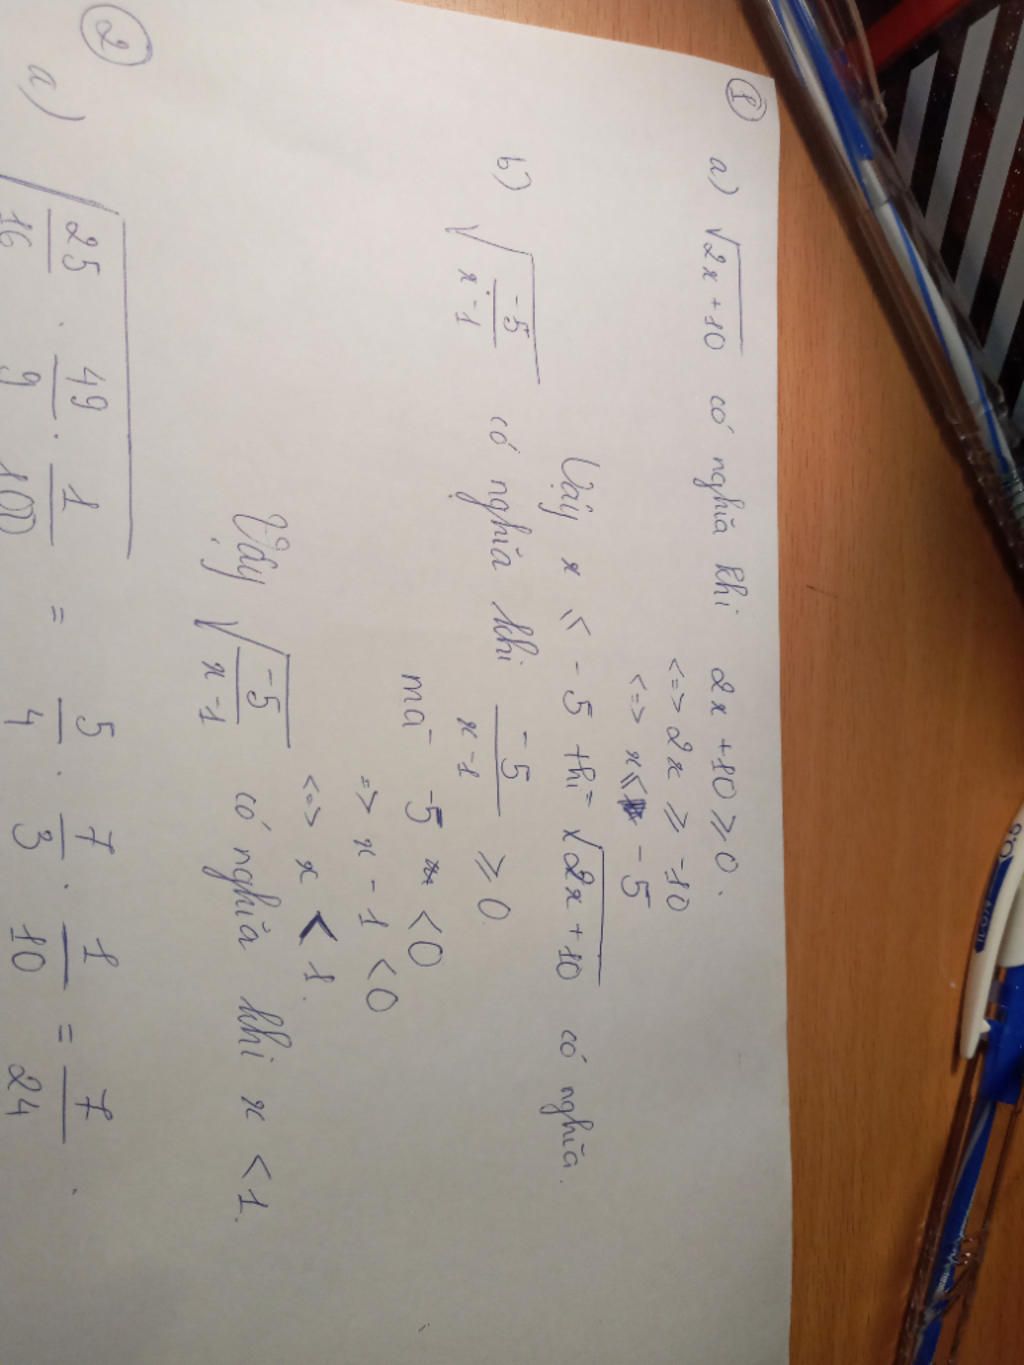 ①
a) √(2x+10) có nghĩa khi 2x+10 ⩾ 0.
<=> 2x ⩾ -10
<=> x ⩽ -5
Vậy x ⩽ -5 thì √(2x+10) có nghĩa.
b) √(-5/(x-1)) có nghĩa khi -5/(x-1) ⩾ 0.
mà -5 < 0
=> x - 1 < 0
<=> x < 1.
Vậy √(-5/(x-1)) có nghĩa khi x < 1.
②
a) √(25/16 . 49/9 . 1/100) = 5/4 . 7/3 . 1/10 = 7/24 .